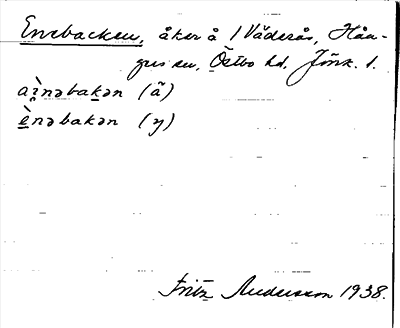 Enebacken, åker å 1 Väderås, Hån-
ger sn, Östbo hd, Jönk. l.
aìnəbakən (ä)
ènəbakən (y)
Fritz Andersson 1938.